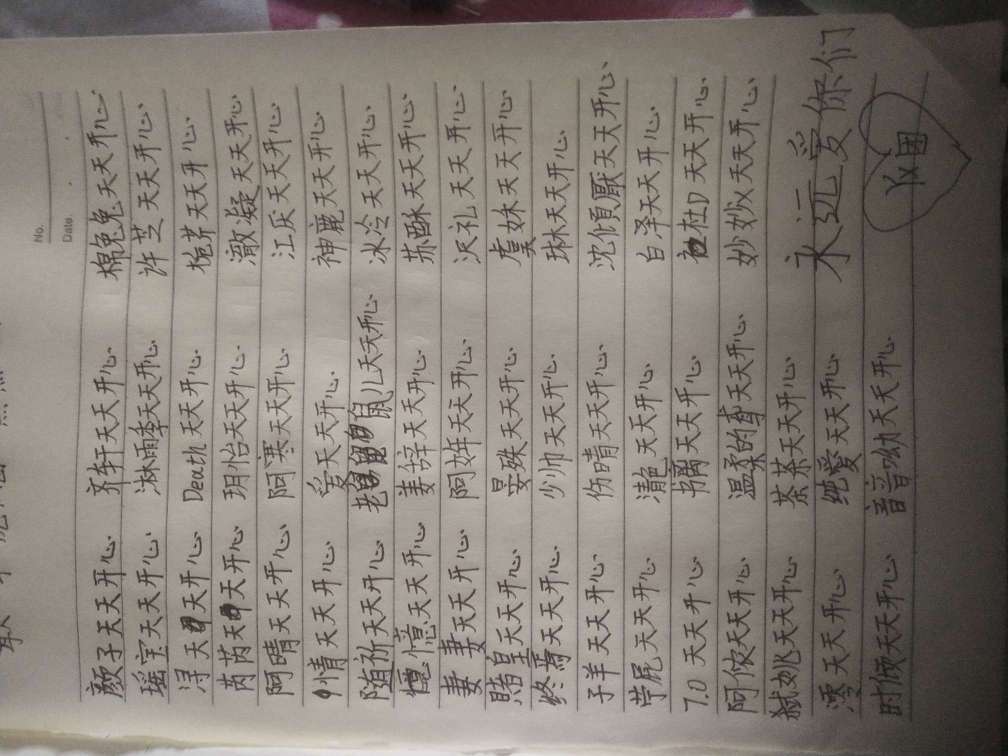 No.
Date.
颜子天天开心. 齐轩天天开心. 棉兔兔天天开心.
瑶宝天天开心. 淋雨季天天开心. 许芝天天开心.
浔天天开心. Death天天开心. 天天开心.
芮芮天天开心. 玥怡天天开心. 澈凝天天开心.
阿晴天天开心. 阿寒天天开心. 江厌天天开心.
情天天开心. 爱天天开心. 神鹿天天开心.
随祈天天开心. 老鼠儿天天开心. 冰冷天天开心.
憶憶天天开心. 姜辞天天开心. 苏酥天天开心.
妻妻天天开心. 阿姩天天开心. 沢礼天天开心.
赌皇天天开心. 晏殊天天开心. 虞妹天天开心.
终焉天天开心. 少帅天天开心. 琳天天开心.
子羊天天开心. 伤晴天天开心. 沈偵厭天天开心.
天天开心. 清艳天天开心. 白泽天天开心.
7.0天天开心. 书离天天开心. 杜D天天开心.
阿侬天天开心. 温柔的尊天天开心. 妙妙义天天开心.
弑姚天天开心. 茶茶天天开心.
澪天天开心. 纯爱天天开心. 永远爱你们
时倾天天开心. 音音呦天天开心. Yx团